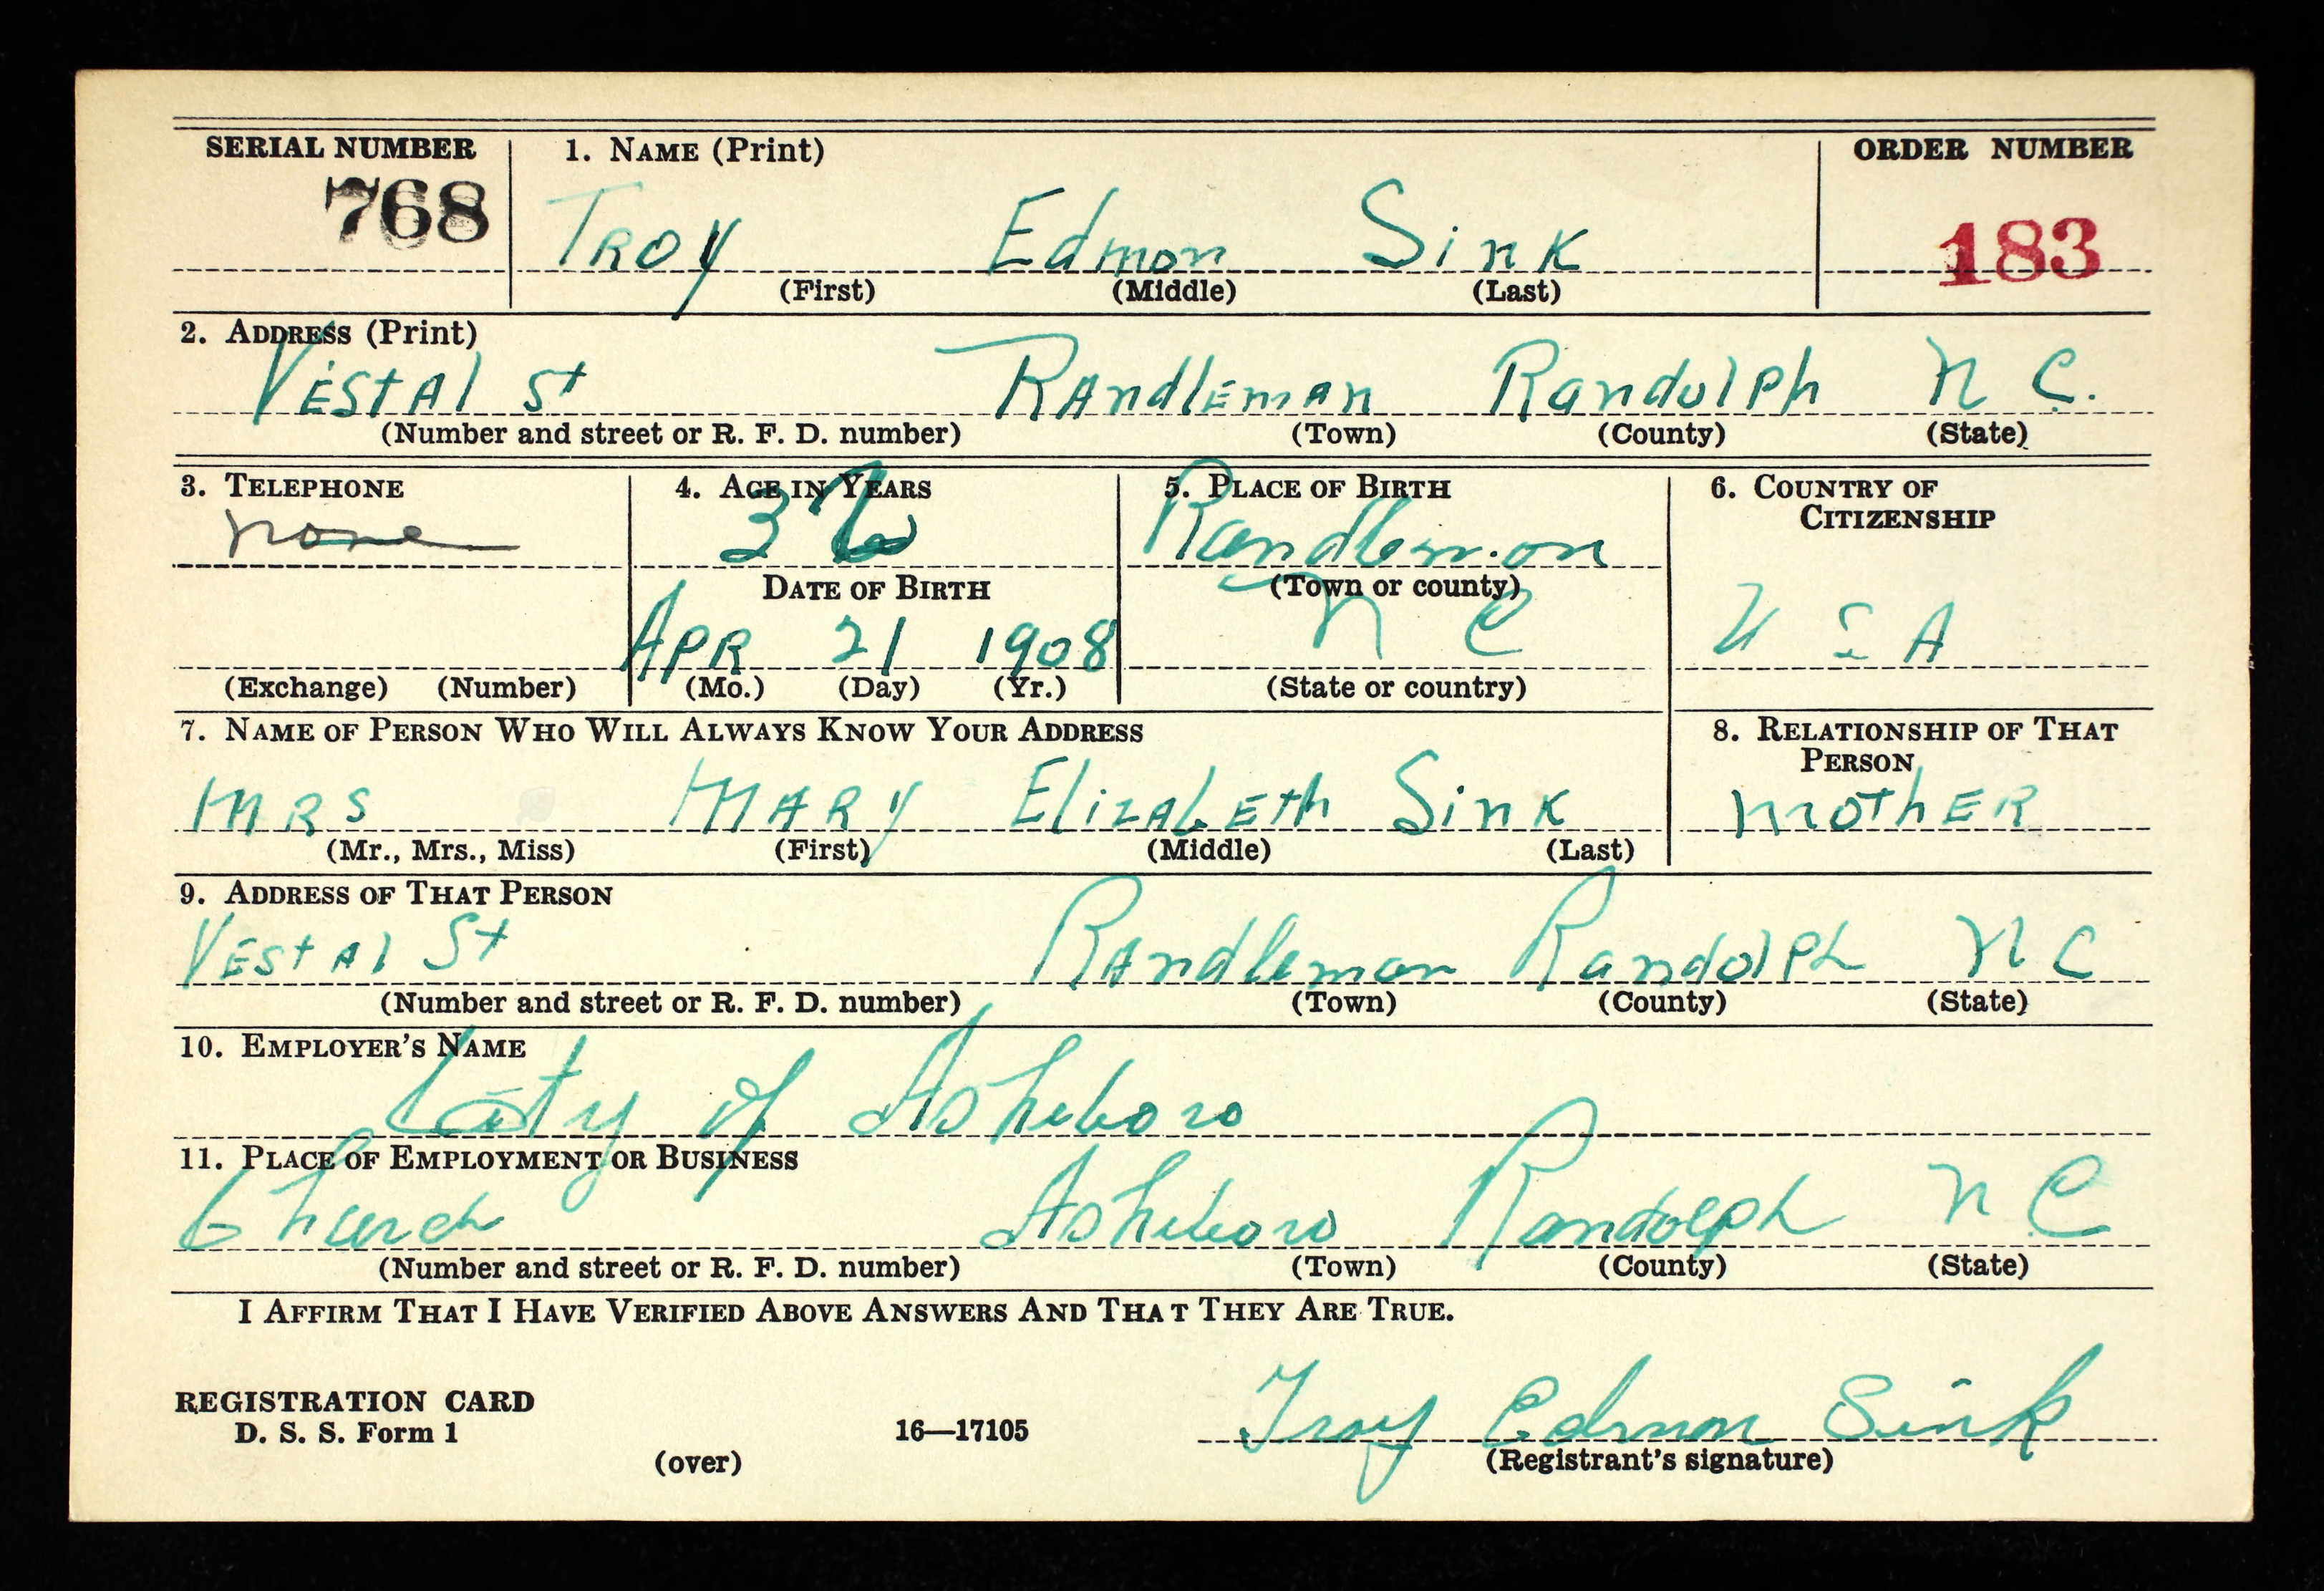 SERIAL NUMBER 1. NAME (Print) ORDER NUMBER
768 TROY Edmon Sink 183
(First) (Middle) (Last)
2. ADDRESS (Print)
VEStAl St RAndlEmAn Randolph N C.
(Number and street or R. F. D. number) (Town) (County) (State)
3. TELEPHONE 4. AGE IN YEARS 5. PLACE OF BIRTH 6. COUNTRY OF
CITIZENSHIP
none Randleman
DATE OF BIRTH (Town or county)
APR 21 1908 N C U S A
(Exchange) (Number) (Mo.) (Day) (Yr.) (State or country)
7. NAME OF PERSON WHO WILL ALWAYS KNOW YOUR ADDRESS 8. RELATIONSHIP OF THAT
PERSON
MRS MARY ElizAbEth Sink mothER
(Mr., Mrs., Miss) (First) (Middle) (Last)
9. ADDRESS OF THAT PERSON
VEStAl St RAndleman Randolph N C
(Number and street or R. F. D. number) (Town) (County) (State)
10. EMPLOYER'S NAME
City of Asheboro
11. PLACE OF EMPLOYMENT OR BUSINESS
Church Asheboro Randolph N C
(Number and street or R. F. D. number) (Town) (County) (State)
I AFFIRM THAT I HAVE VERIFIED ABOVE ANSWERS AND THAT THEY ARE TRUE.
REGISTRATION CARD
D. S. S. Form 1 16—17105 Troy Edmon Sink
(over) (Registrant's signature)